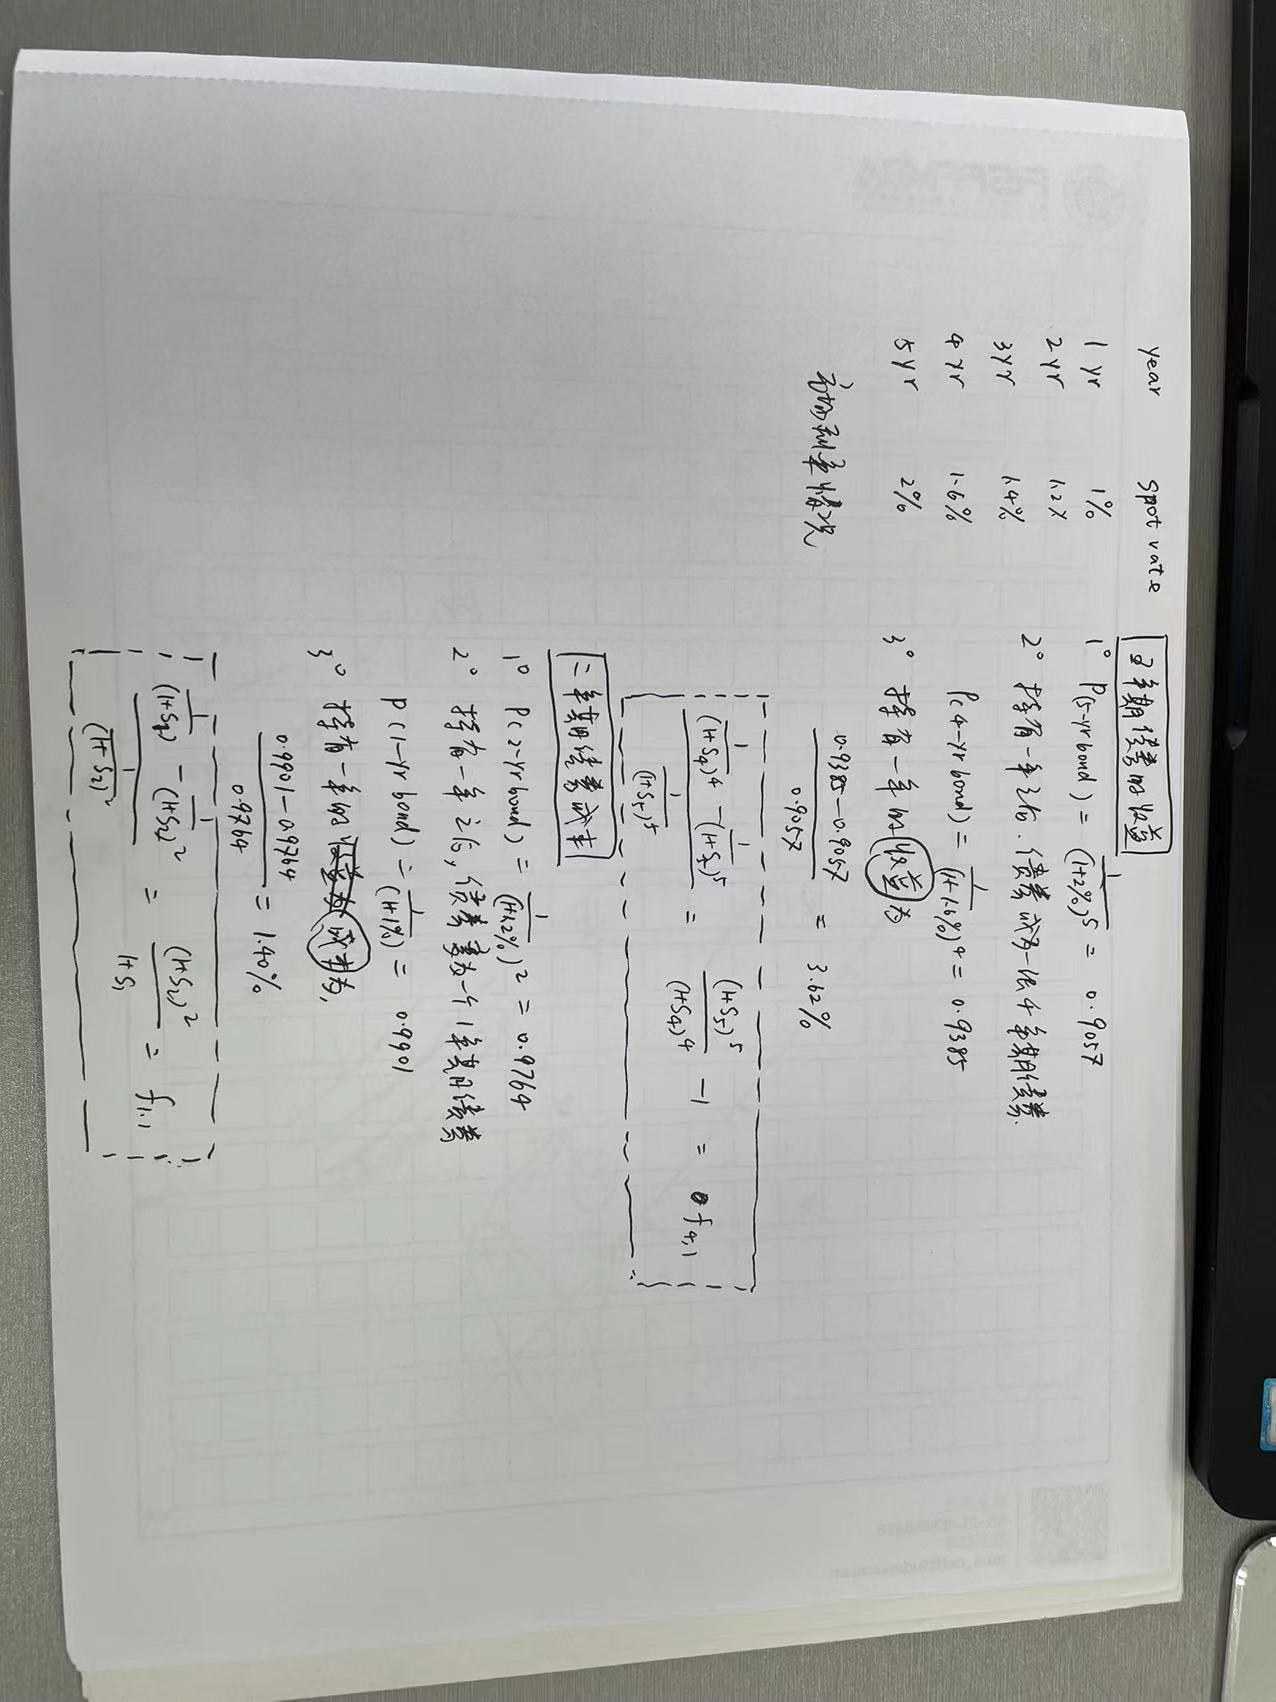 year spot rate
1 yr 1%
2 yr 1.2%
3 yr 1.4%
4 yr 1.6%
5 yr 2%
市场利率情况
五年期债券的收益
1° P(5-yr bond) = 1/(1+2%)^5 = 0.9057
2° 持有一年之后,债券成为一张4年期债券.
P(4-yr bond) = 1/(1+1.6%)^4 = 0.9385
3° 持有一年的收益为
(0.9385-0.9057)/0.9057 = 3.62%
(1/(1+S4)^4 - 1/(1+S5)^5)/(1/(1+S5)^5) = (1+S5)^5/(1+S4)^4 - 1 = f4,1
二年期债券成本
1° P(2-yr bond) = 1/(1+1.2%)^2 = 0.9764
2° 持有一年之后,债券变为一个1年期债券
P(1-yr bond) = 1/(1+1%) = 0.9901
3° 持有一年的成本为,
(0.9901-0.9764)/0.9764 = 1.40%
(1/(1+S1) - 1/(1+S2)^2)/(1/(1+S2)^2) = (1+S2)^2/1+S1 = f1,1